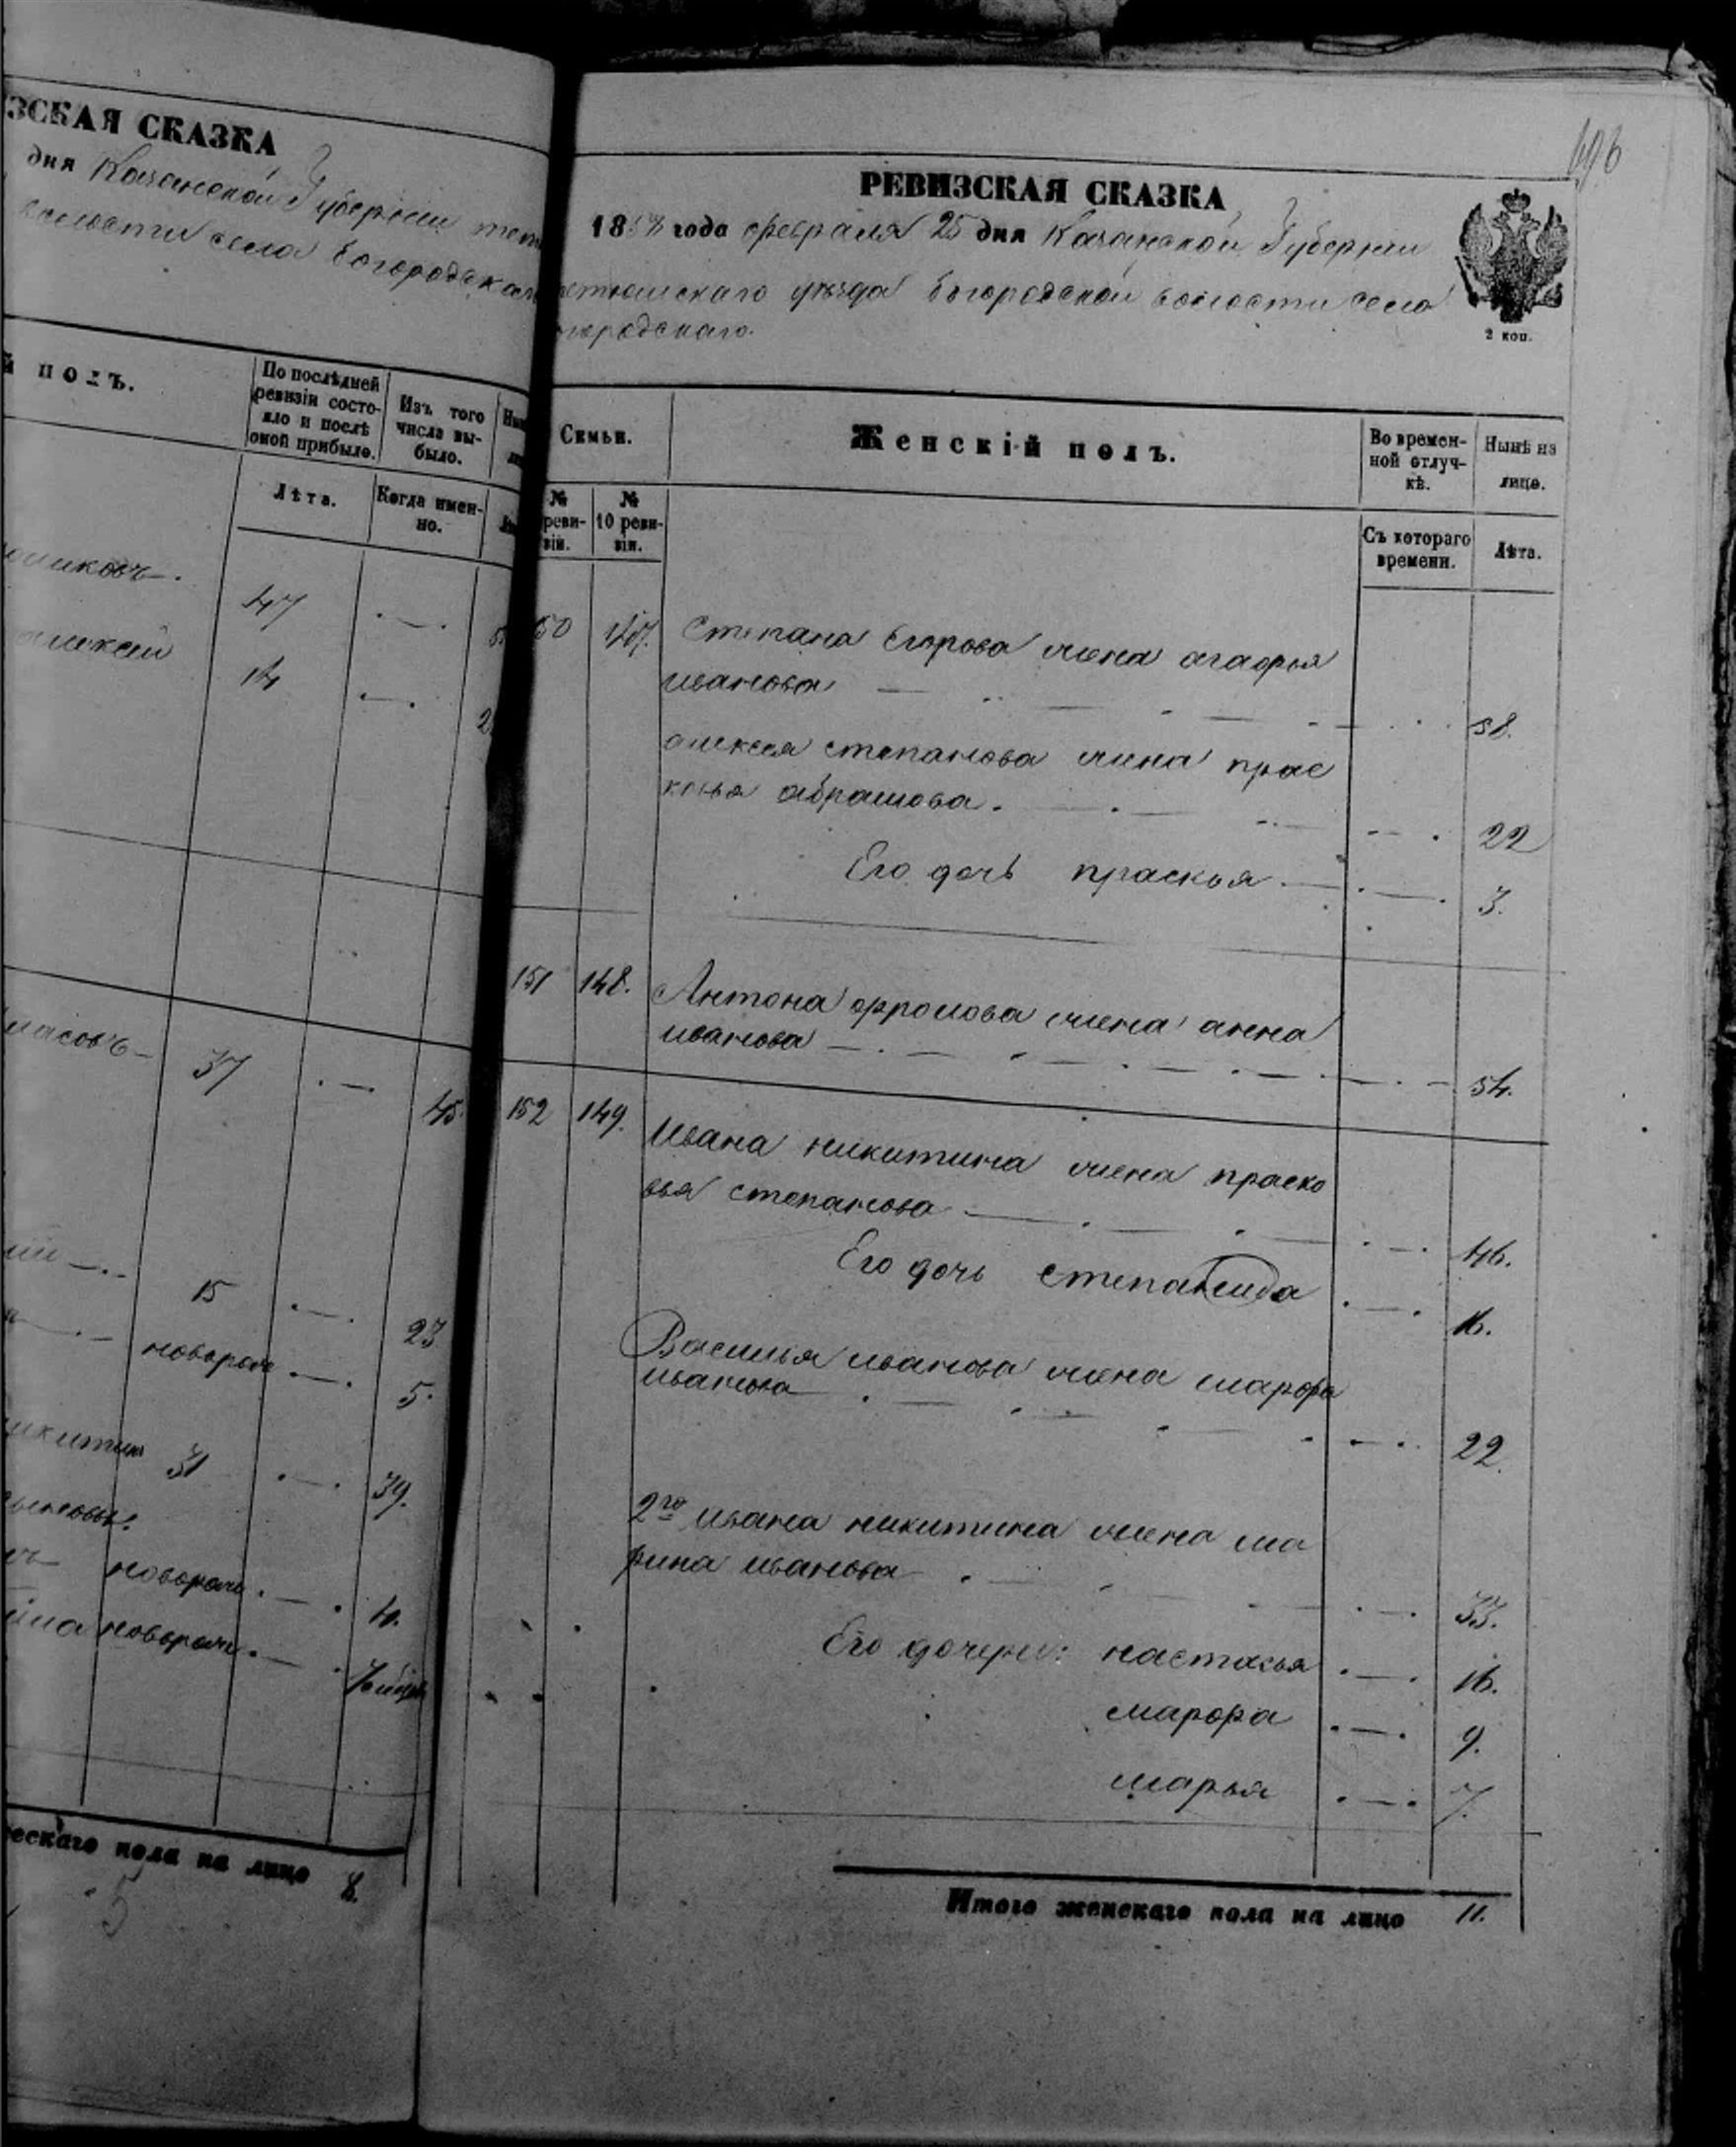 ЗСКАЯ СКАЗКА
дня Казанской Губернiи тет
волости села Богородскаго
й полъ.
По послѣдней ревизiи состо-
яло и послѣ
оной прибыло.
Изъ того
числа вы-
было.
Лѣта.
Когда имен-
но.
47
алексей
14
37
45.
15
23
новорож
5.
никитин
31
39.
новорож
4.
новорож
ескаго пола на лицо 8.
5
196
РЕВИЗСКАЯ СКАЗКА
1858 года февраля 25 дня Казанской Губернiи
етюшскаго уѣзда Богородской волости села
городскаго.
2 коп.
Семьи.
Женскiй полъ.
Во времен-
ной отлуч-
кѣ.
Нынѣ на
лицо.
№
реви-
зiи.
№
10 реви-
зiи.
Съ котораго
времени.
Лѣта.
50 147. Степана Егорова жена агафья
иванова 58.
алексея степанова жена прас
ковья абрамова. 22
Его дочь прасковья 3.
151 148. Антона фролова жена анна
иванова 54.
152 149. Ивана никитина жена праско
вья степанова 46.
Его дочь степанида 16.
Василья иванова жена марфа
иванова 22.
2го ивана никитина жена ма
рина иванова 33.
Его дочери: настасья 16.
марфа 9.
марья 7.
Итого женскаго пола на лицо 11.